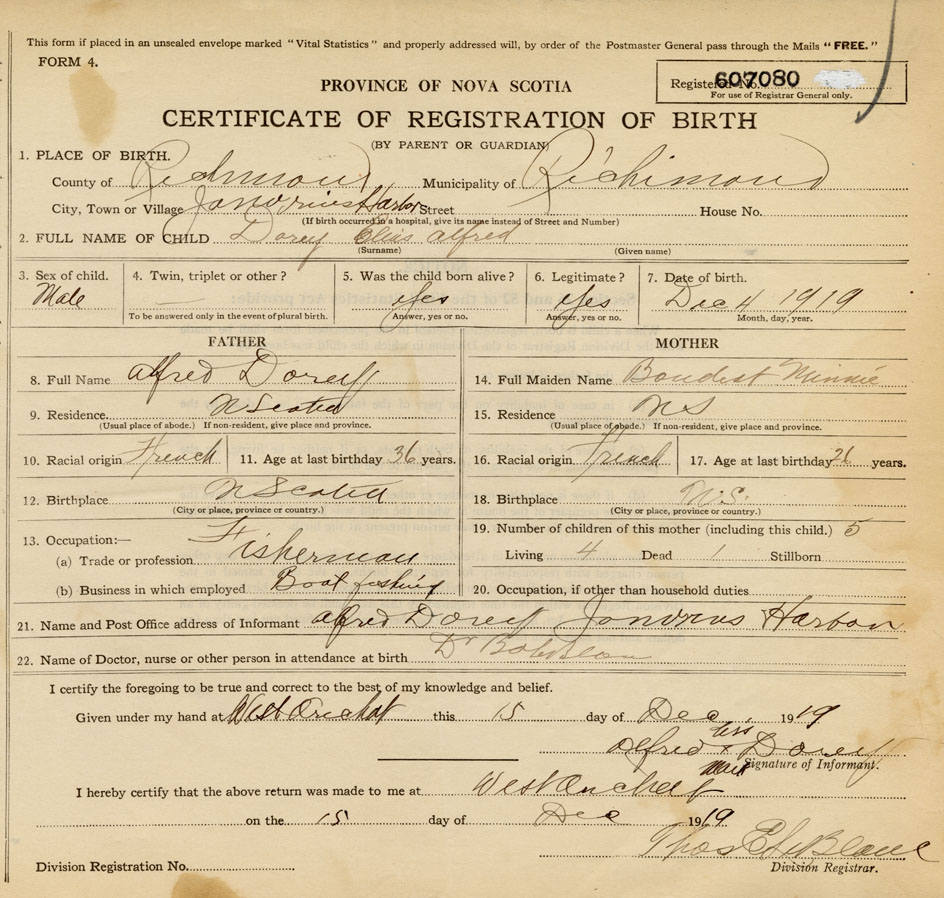 This form if placed in an unsealed envelope marked "Vital Statistics" and properly addressed will, by order of the Postmaster General pass through the Mails "FREE."
FORM 4.
Registered No. 607080
For use of Registrar General only.
PROVINCE OF NOVA SCOTIA
CERTIFICATE OF REGISTRATION OF BIRTH
(BY PARENT OR GUARDIAN)
1. PLACE OF BIRTH.
County of Richmond Municipality of Richimond
City, Town or Village Janvrins Harbor Street House No.
(If birth occurred in a hospital, give its name instead of Street and Number)
2. FULL NAME OF CHILD Dorey Elias alfred
(Surname) (Given name)
3. Sex of child. 4. Twin, triplet or other? 5. Was the child born alive? 6. Legitimate? 7. Date of birth.
Male — yes yes Dec 4 1919
To be answered only in the event of plural birth. Answer, yes or no. Answer, yes or no. Month, day, year.
FATHER MOTHER
8. Full Name alfred Dorey 14. Full Maiden Name Minnie
9. Residence. N Scotia 15. Residence NS
(Usual place of abode.) If non-resident, give place and province. (Usual place of abode.) If non-resident, give place and province.
10. Racial origin French 11. Age at last birthday 36 years. 16. Racial origin French 17. Age at last birthday 26 years.
12. Birthplace N Scotia 18. Birthplace N.S.
(City or place, province or country.) (City or place, province or country.)
19. Number of children of this mother (including this child.) 5
13. Occupation:— Fisherman
(a) Trade or profession Living 4 Dead 1 Stillborn
(b) Business in which employed Boat fishing 20. Occupation, if other than household duties
21. Name and Post Office address of Informant alfred Dorey Janvrins Harbor
22. Name of Doctor, nurse or other person in attendance at birth Dr
I certify the foregoing to be true and correct to the best of my knowledge and belief.
Given under my hand at West Arichat this 15 day of Dec 1919
his
alfred x Dorey
mark Signature of Informant.
I hereby certify that the above return was made to me at West Arichat
on the 15 day of Dec 1919
Thos E LeBlanc
Division Registration No. Division Registrar.